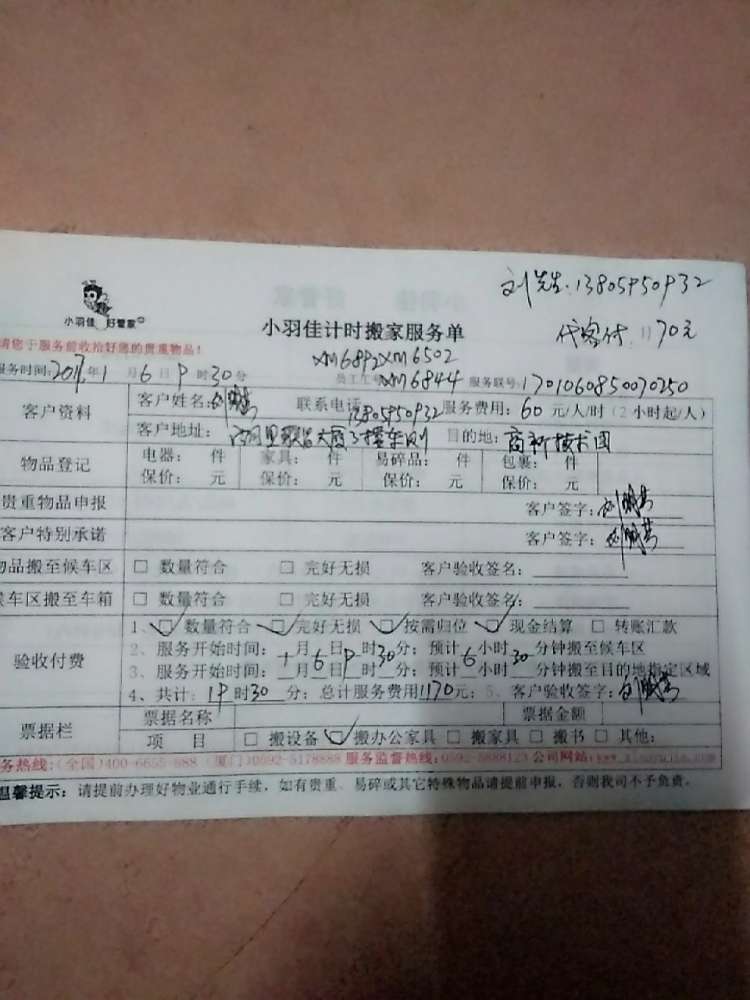 刘先生:13805950932
代客付 1170元
小羽佳 好管家
小羽佳计时搬家服务单
请您于服务前收拾好您的贵重物品!
XM6892XM6502
服务时间:2017年1月6日9时30分 员工工号XM6844 服务联号:1701060850070250
客户资料 客户姓名: 联系电话13805950932 服务费用:60元/人/时(2小时起/人)
客户地址: 目的地:
物品登记 电器: 件 家具: 件 易碎品: 件 包裹: 件
保价: 元 保价: 元 保价: 元 保价: 元
贵重物品申报 客户签字:
客户特别承诺 客户签字:
物品搬至候车区 □ 数量符合 □ 完好无损 客户验收签名:
候车区搬至车箱 □ 数量符合 □ 完好无损 客户验收签名:
验收付费 1、☑ 数量符合 ☑ 完好无损 ☑ 按需归位 ☑ 现金结算 □ 转账汇款
2、服务开始时间:1月6日9时30分;预计6小时30分钟搬至候车区
3、服务开始时间: 月 日 时 分;预计 小时 分钟搬至目的地指定区域
4、共计:19时30分;总计服务费用1170元;5、客户验收签字:
票据栏 票据名称 票据金额
项 目 □ 搬设备 ☑ 搬办公家具 □ 搬家具 □ 搬书 □ 其他:
服务热线:(全国)400-6655-888 (厦门)0592-5178888 服务监督热线:0592-5888123 公司网站:
温馨提示:请提前办理好物业通行手续,如有贵重、易碎或其它特殊物品请提前申报,否则我司不予负责。